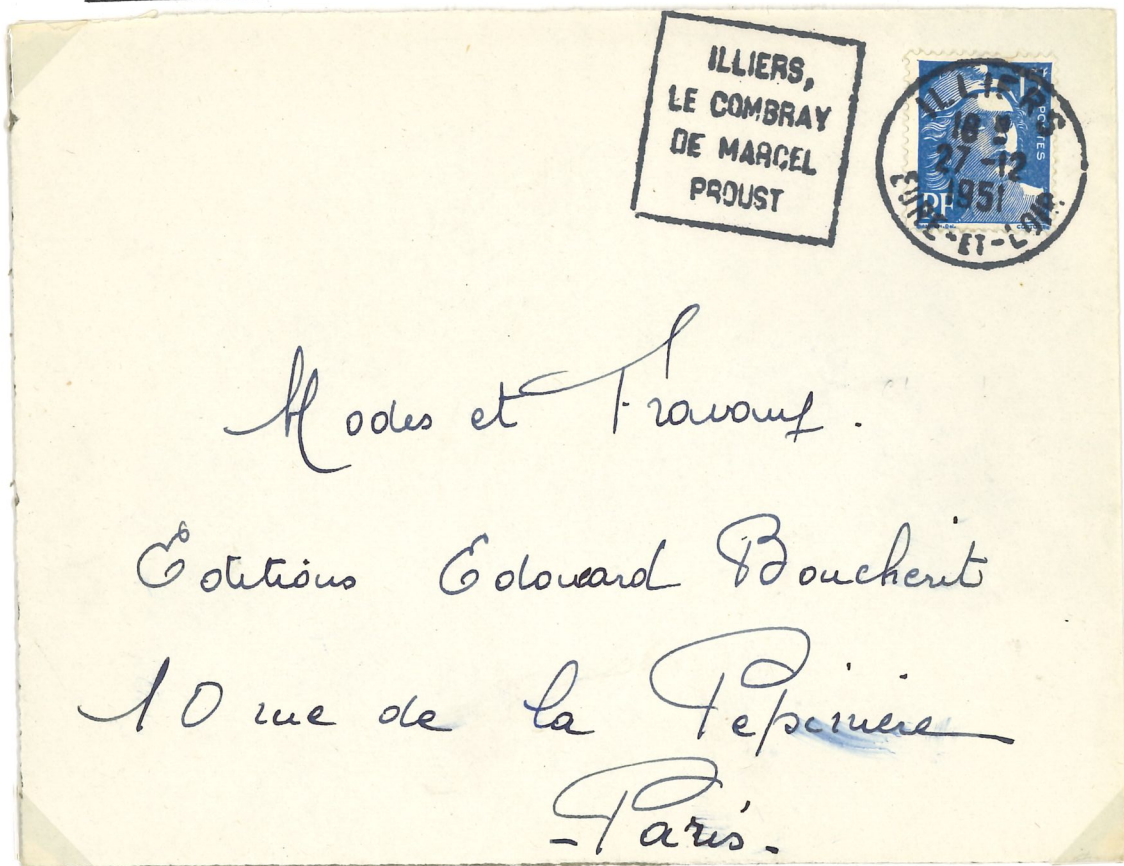 ILLIERS,
LE COMBRAY
DE MARCEL
PROUST
ILLIERS
18
27-12
1951
EURE-ET-LOIR
POSTES
RF
Modes et Travaux.
Editions Edouard Boucherit
10 rue de la Pepiniere
- Paris -